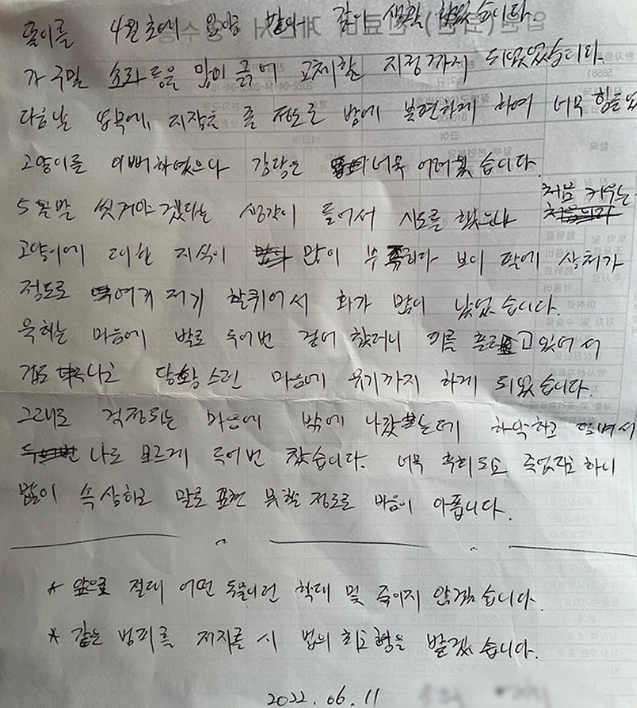 똘이를 4월 초에 입양 받아 같이 생활 하였습니다.
가구 및 소파 등을 많이 긁어 교체할 지경까지 되었었습니다.
다음날 업무에 지장을 줄 정도로 밤에 불편하게 하여 너무 힘들었
고양이를 이뻐하였으나 감당은 너무 어려웠습니다.
5월말 씻겨야겠다는 생각이 들어서 시도를 했으나 처음 키우는
고양이에 대한 지식이 많이 부족하다 보니 팔에 상처가
정도로 여기 저기 할퀴어서 화가 많이 났었습니다.
욱하는 마음에 발로 두어번 걷어 찼더니 피를 흘리고 있어서
겁도 나고 당황스런 마음에 유기까지 하게 되었습니다.
그래도 걱정되는 마음에 밖에 나갔는데 하악하고 덤벼서
나도 모르게 두어번 찼습니다. 너무 후회되고 죽었다고 하니
많이 속상하고 말로 표현 못할 정도로 마음이 아픕니다.
* 앞으로 절대 어떤 동물이던 학대 및 죽이지 않겠습니다.
* 같은 범죄를 저지를 시 법의 최고형을 받겠습니다.
2022. 06. 11